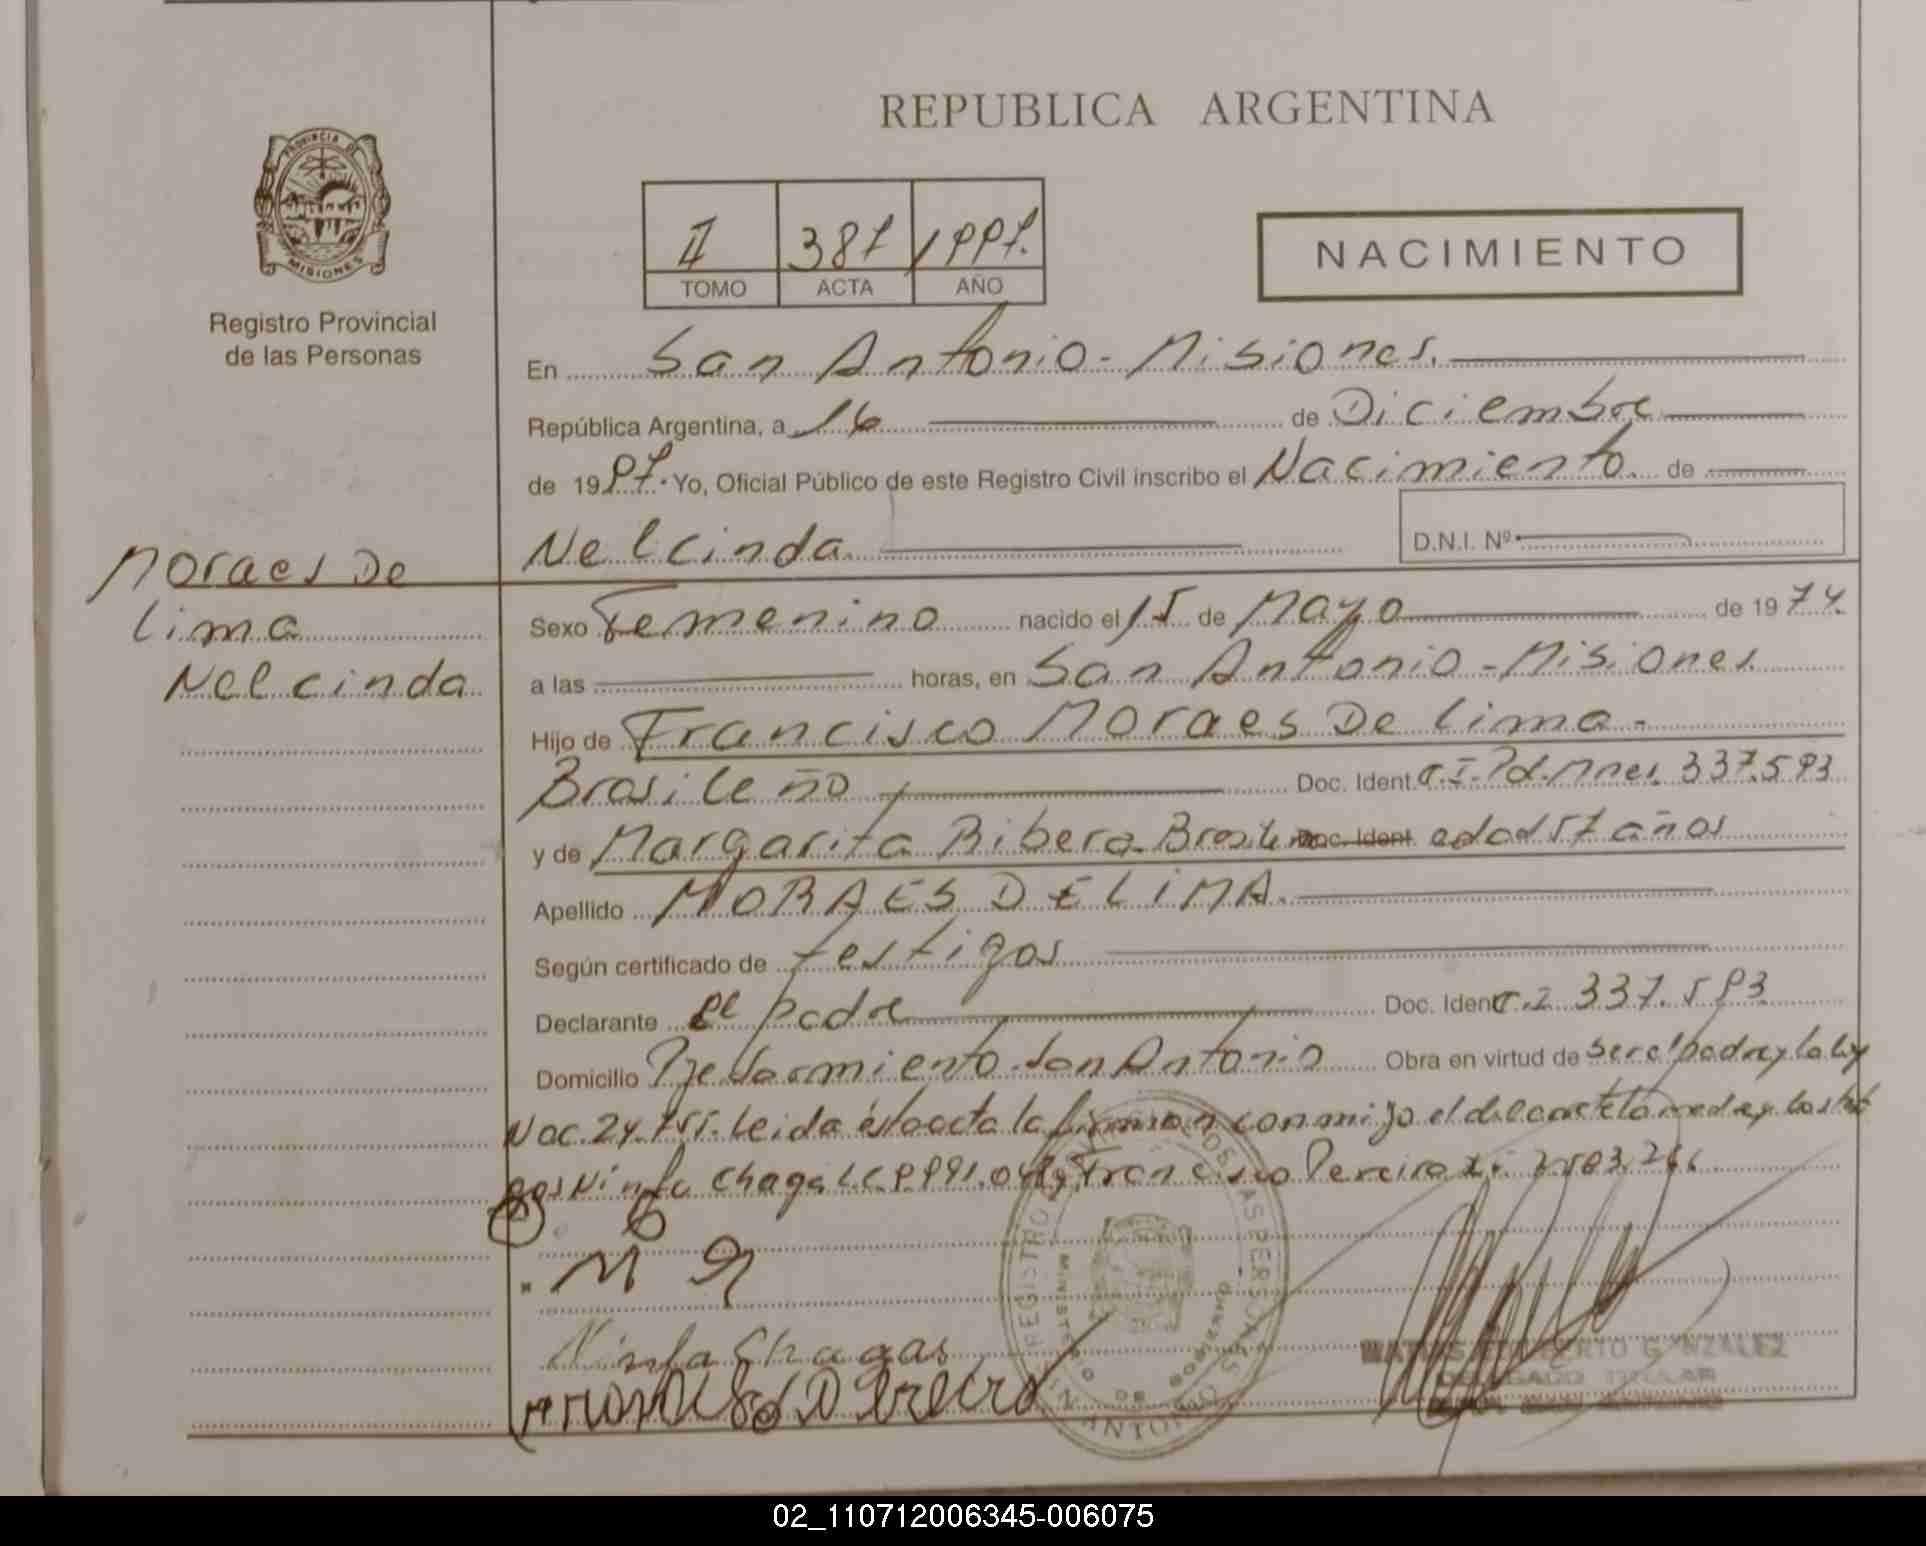 REPUBLICA ARGENTINA
PROVINCIA DE
MISIONES
Registro Provincial
de las Personas
II 387 1997.
TOMO ACTA AÑO
NACIMIENTO
En San Antonio - Misiones.
República Argentina, a 16 de Diciembre
de 1997. Yo, Oficial Público de este Registro Civil inscribo el Nacimiento de
Nelcinda
D.N.I. Nº
Moraes De
Lima
Nelcinda
Sexo Femenino nacido el 15 de Mayo de 1974.
a las horas, en San Antonio - Misiones
Hijo de Francisco Moraes De Lima -
Brasileño Doc. Ident. C.I. Pol. Mnes. 337.593
y de Margarita Ribera Doc. Ident. edad 57 años
Apellido MORAES DE LIMA.
Según certificado de testigos
Declarante El padre Doc. Ident. C.I 337.593
Domicilio San Antonio Obra en virtud de ser el padre y la ley
Nac. Leida ésta acta la firman conmigo el
Ninfa Chaga Francisco Pereira
M
Ninfa Chagas
Pereira
REGISTRO
DE LAS PERSONAS
SAN ANTONIO
GONZALEZ
DELEGADO TITULAR
SAN ANTONIO
02_110712006345-006075